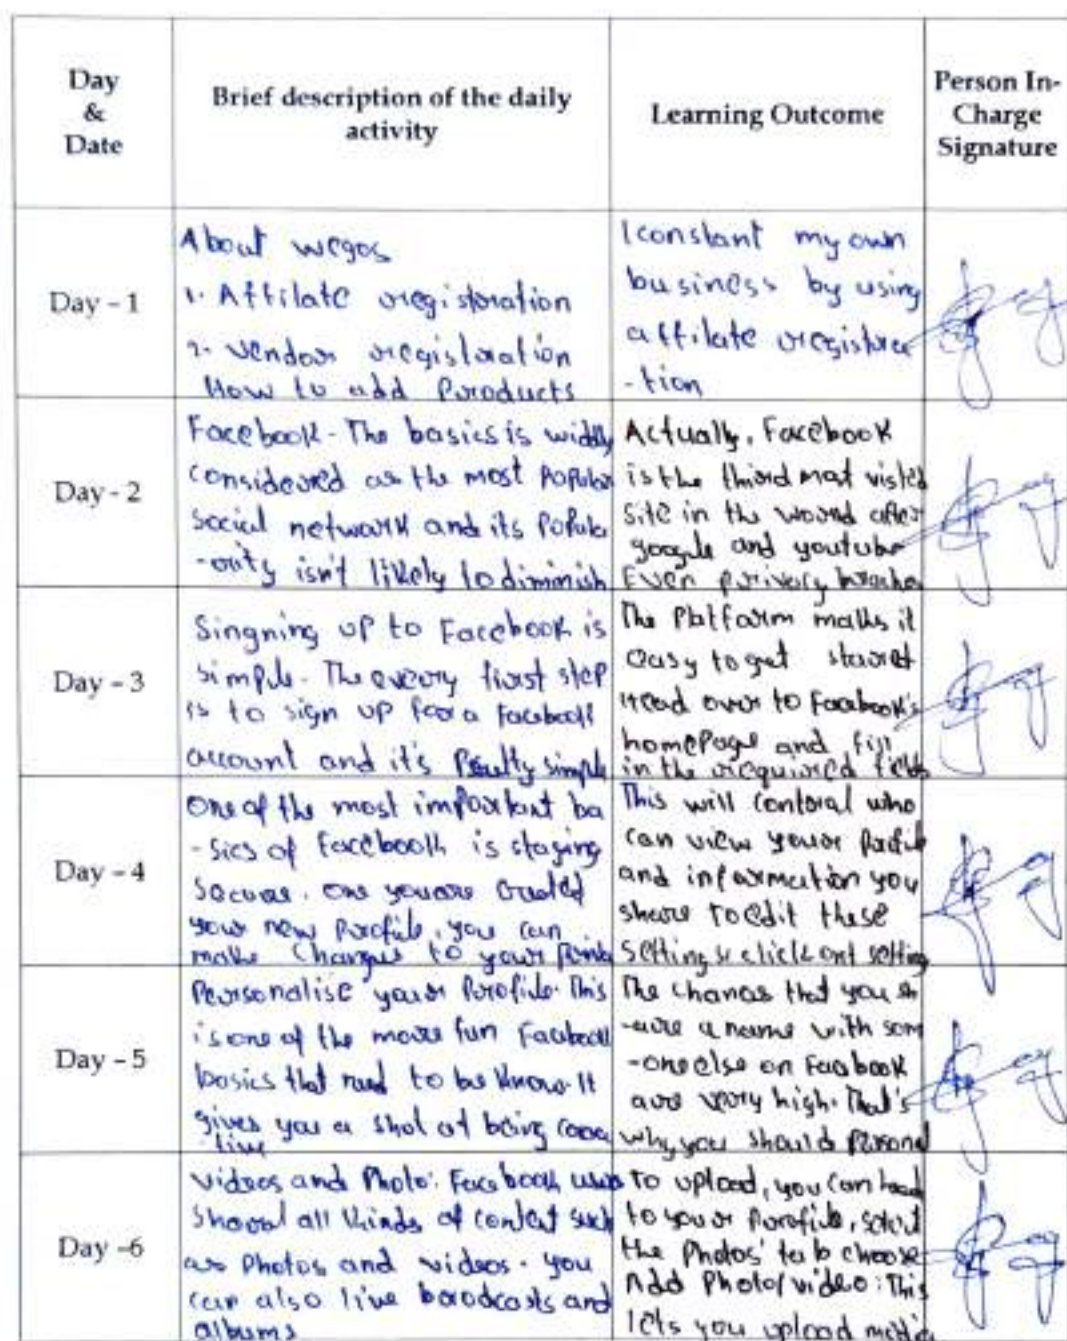 Day
&
Date
Brief description of the daily
activity
Learning Outcome
Person In-
Charge
Signature
Day - 1
About wegos
1. Affilate registoration
2. vendor registoration
How to add Products
I constant my own
business by using
affilate registra
-tion
Day - 2
Facebook - The basics is widdly
considered as the most Popular
social network and its Popula
-rity isn't likely to diminish
Actually, Facebook
is the third most visted
Site in the world after
google and youtube
Even
Day - 3
Singning up to Facebook is
simple. The every first step
is to sign up for a Facebook
account and it's Pretty simple
The Platform makes it
easy to get
Head over to Facebook's
homepage and fill
in the required fields
Day - 4
One of the most important ba
-sics of Facebook is staying
Secure. one
your new Profile, you can
make Changes to your
This will contoral who
can view your Profile
and information you
share To edit these
Settings click ont setting
Day - 5
Personalise your Profile. This
is one of the more fun Facebook
basics that need to be know. It
gives you a shot at being crea
-tive
The chanas that you sh
-are a name with som
-one else on Facebook
are very high. That's
why, you should Personal
Day -6
videos and Photo: Facebook users
all kinds of content such
as Photos and videos. you
can also live borodcasts and
albums
To upload, you can head
to your Profile, select
the Photos' tab choose
Add Photo/video: This
lets you upload media